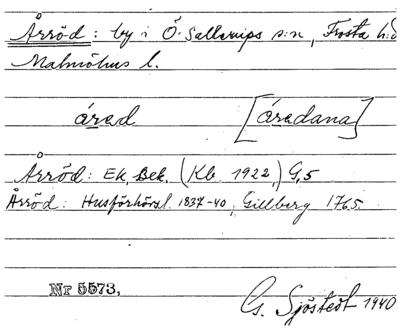 Årröd: by i Ö. Sallerups s:n, Frosta h:d
Malmöhus l.
árəd [árədana]
Årröd: Ek. Bek. (Kb. 1922,) G,5
Årröd: Husförhörsl. 1837-40, Gillberg 1765.
Nr 5573,
G. Sjöstedt 1940